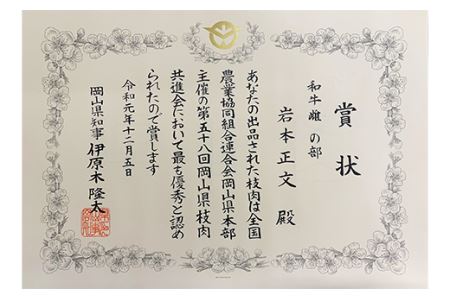 賞状
和牛雌の部
岩本正文 殿
あなたの出品された枝肉は全国
農業協同組合連合会岡山県本部
主催の第五十八回岡山県枝肉
共進会において最も優秀と認め
られたので賞します
令和元年十二月五日
岡山県知事 伊原木隆太